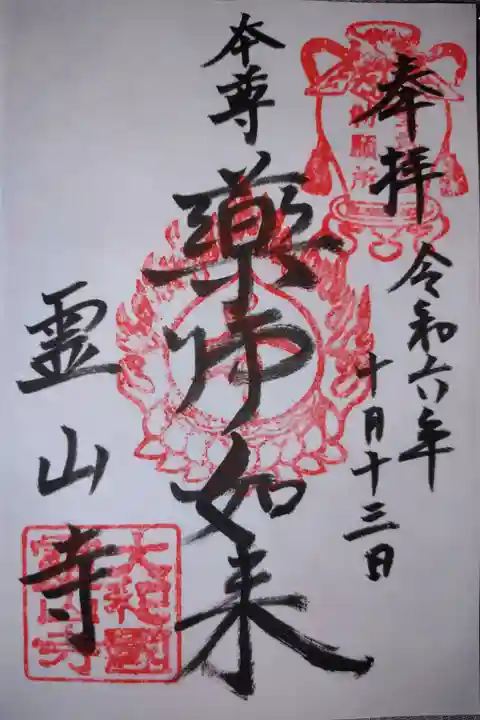 奉拝
令和六年
十月十三日
本尊
薬師如来
霊山寺
勅願所
大和國
霊山寺